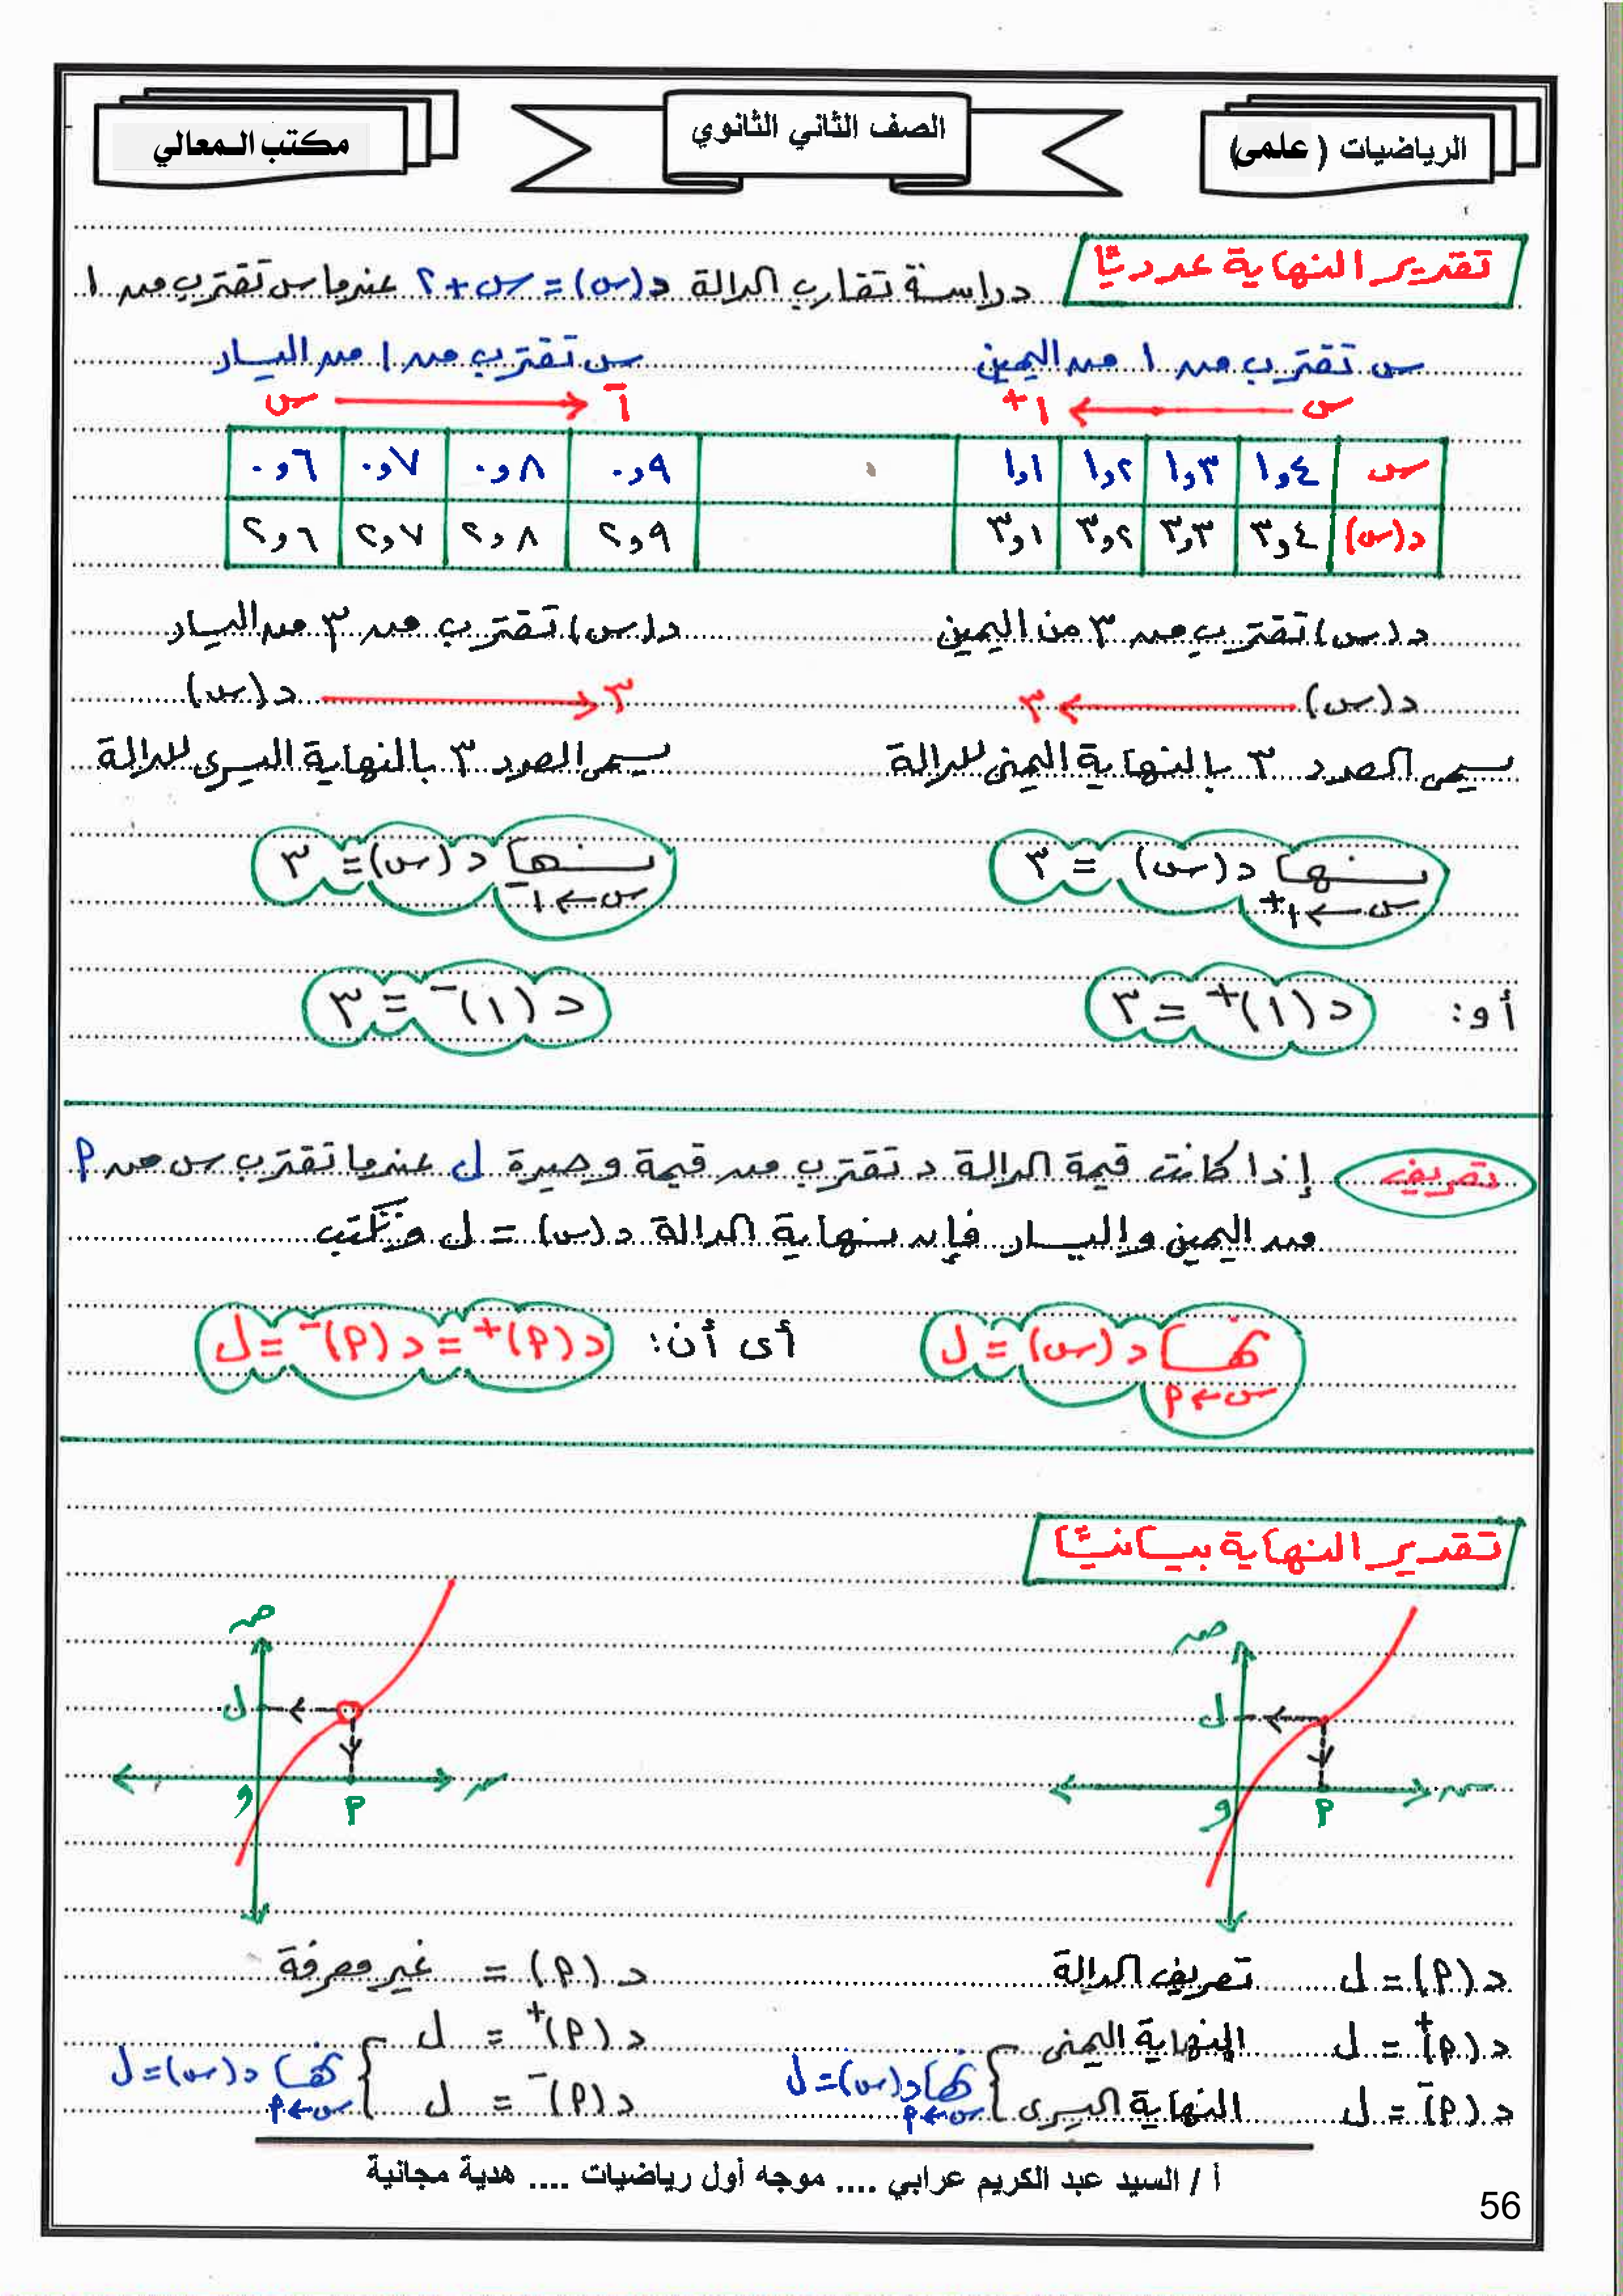 الرياضيات ( علمى)
الصف الثاني الثانوي
مكتب المعالي
تقدير النهاية عدديًا
دراسة تقارب الدالة د(س) = س + ٢ عندما س تقترب من ١
س تقترب من ١ من اليمين
س تقترب من ١ من اليسار
س ← ١+
١- ← س
س ١,٤ ١,٣ ١,٢ ١,١ ٠,٩ ٠,٨ ٠,٧ ٠,٦
د(س) ٣,٤ ٣,٣ ٣,٢ ٣,١ ٢,٩ ٢,٨ ٢,٧ ٢,٦
د(س) تقترب من ٣ من اليمين
د(س) تقترب من ٣ من اليسار
د(س) ← ٣
٣ ← د(س)
يسمى العدد ٣ بالنهاية اليمنى للدالة
يسمى العدد ٣ بالنهاية اليسرى للدالة
نهــا د(س) = ٣
س ← ١+
نهــا د(س) = ٣
س ← ١-
أو: د(١)+ = ٣
د(١)- = ٣
تعريف إذا كانت قيمة الدالة د تقترب من قيمة وحيدة ل عندما تقترب س من م
من اليمين واليسار فإن نهاية الدالة د(س) = ل وتكتب
نهــا د(س) = ل
س ← م
أى أن: د(م)+ = د(م)- = ل
تقدير النهاية بيانيًا
صـ
ل
سـ
و
م
صـ
ل
سـ
و
م
د(م) = ل تعريف الدالة
د(م) = غير معرفة
د(م)+ = ل النهاية اليمنى
د(م)- = ل النهاية اليسرى
نهــا د(س) = ل
س ← م
د(م)+ = ل
د(م)- = ل
نهــا د(س) = ل
س ← م
أ / السيد عبد الكريم عرابي .... موجه أول رياضيات .... هدية مجانية
56